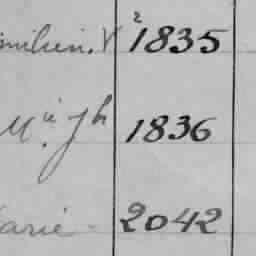 milien. V 1835
Mie Jh 1836
arie 2042